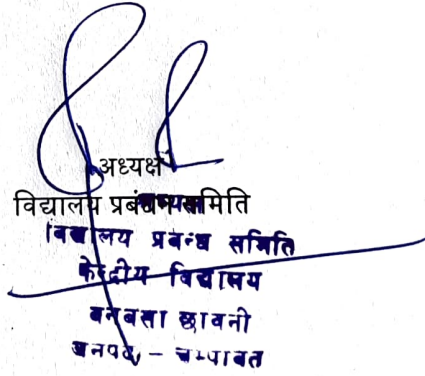 अध्यक्ष
विद्यालय प्रबंधन समिति
विद्यालय प्रबन्ध समिति
केन्द्रीय विद्यालय
बनबसा छावनी
जनपद - चम्पावत